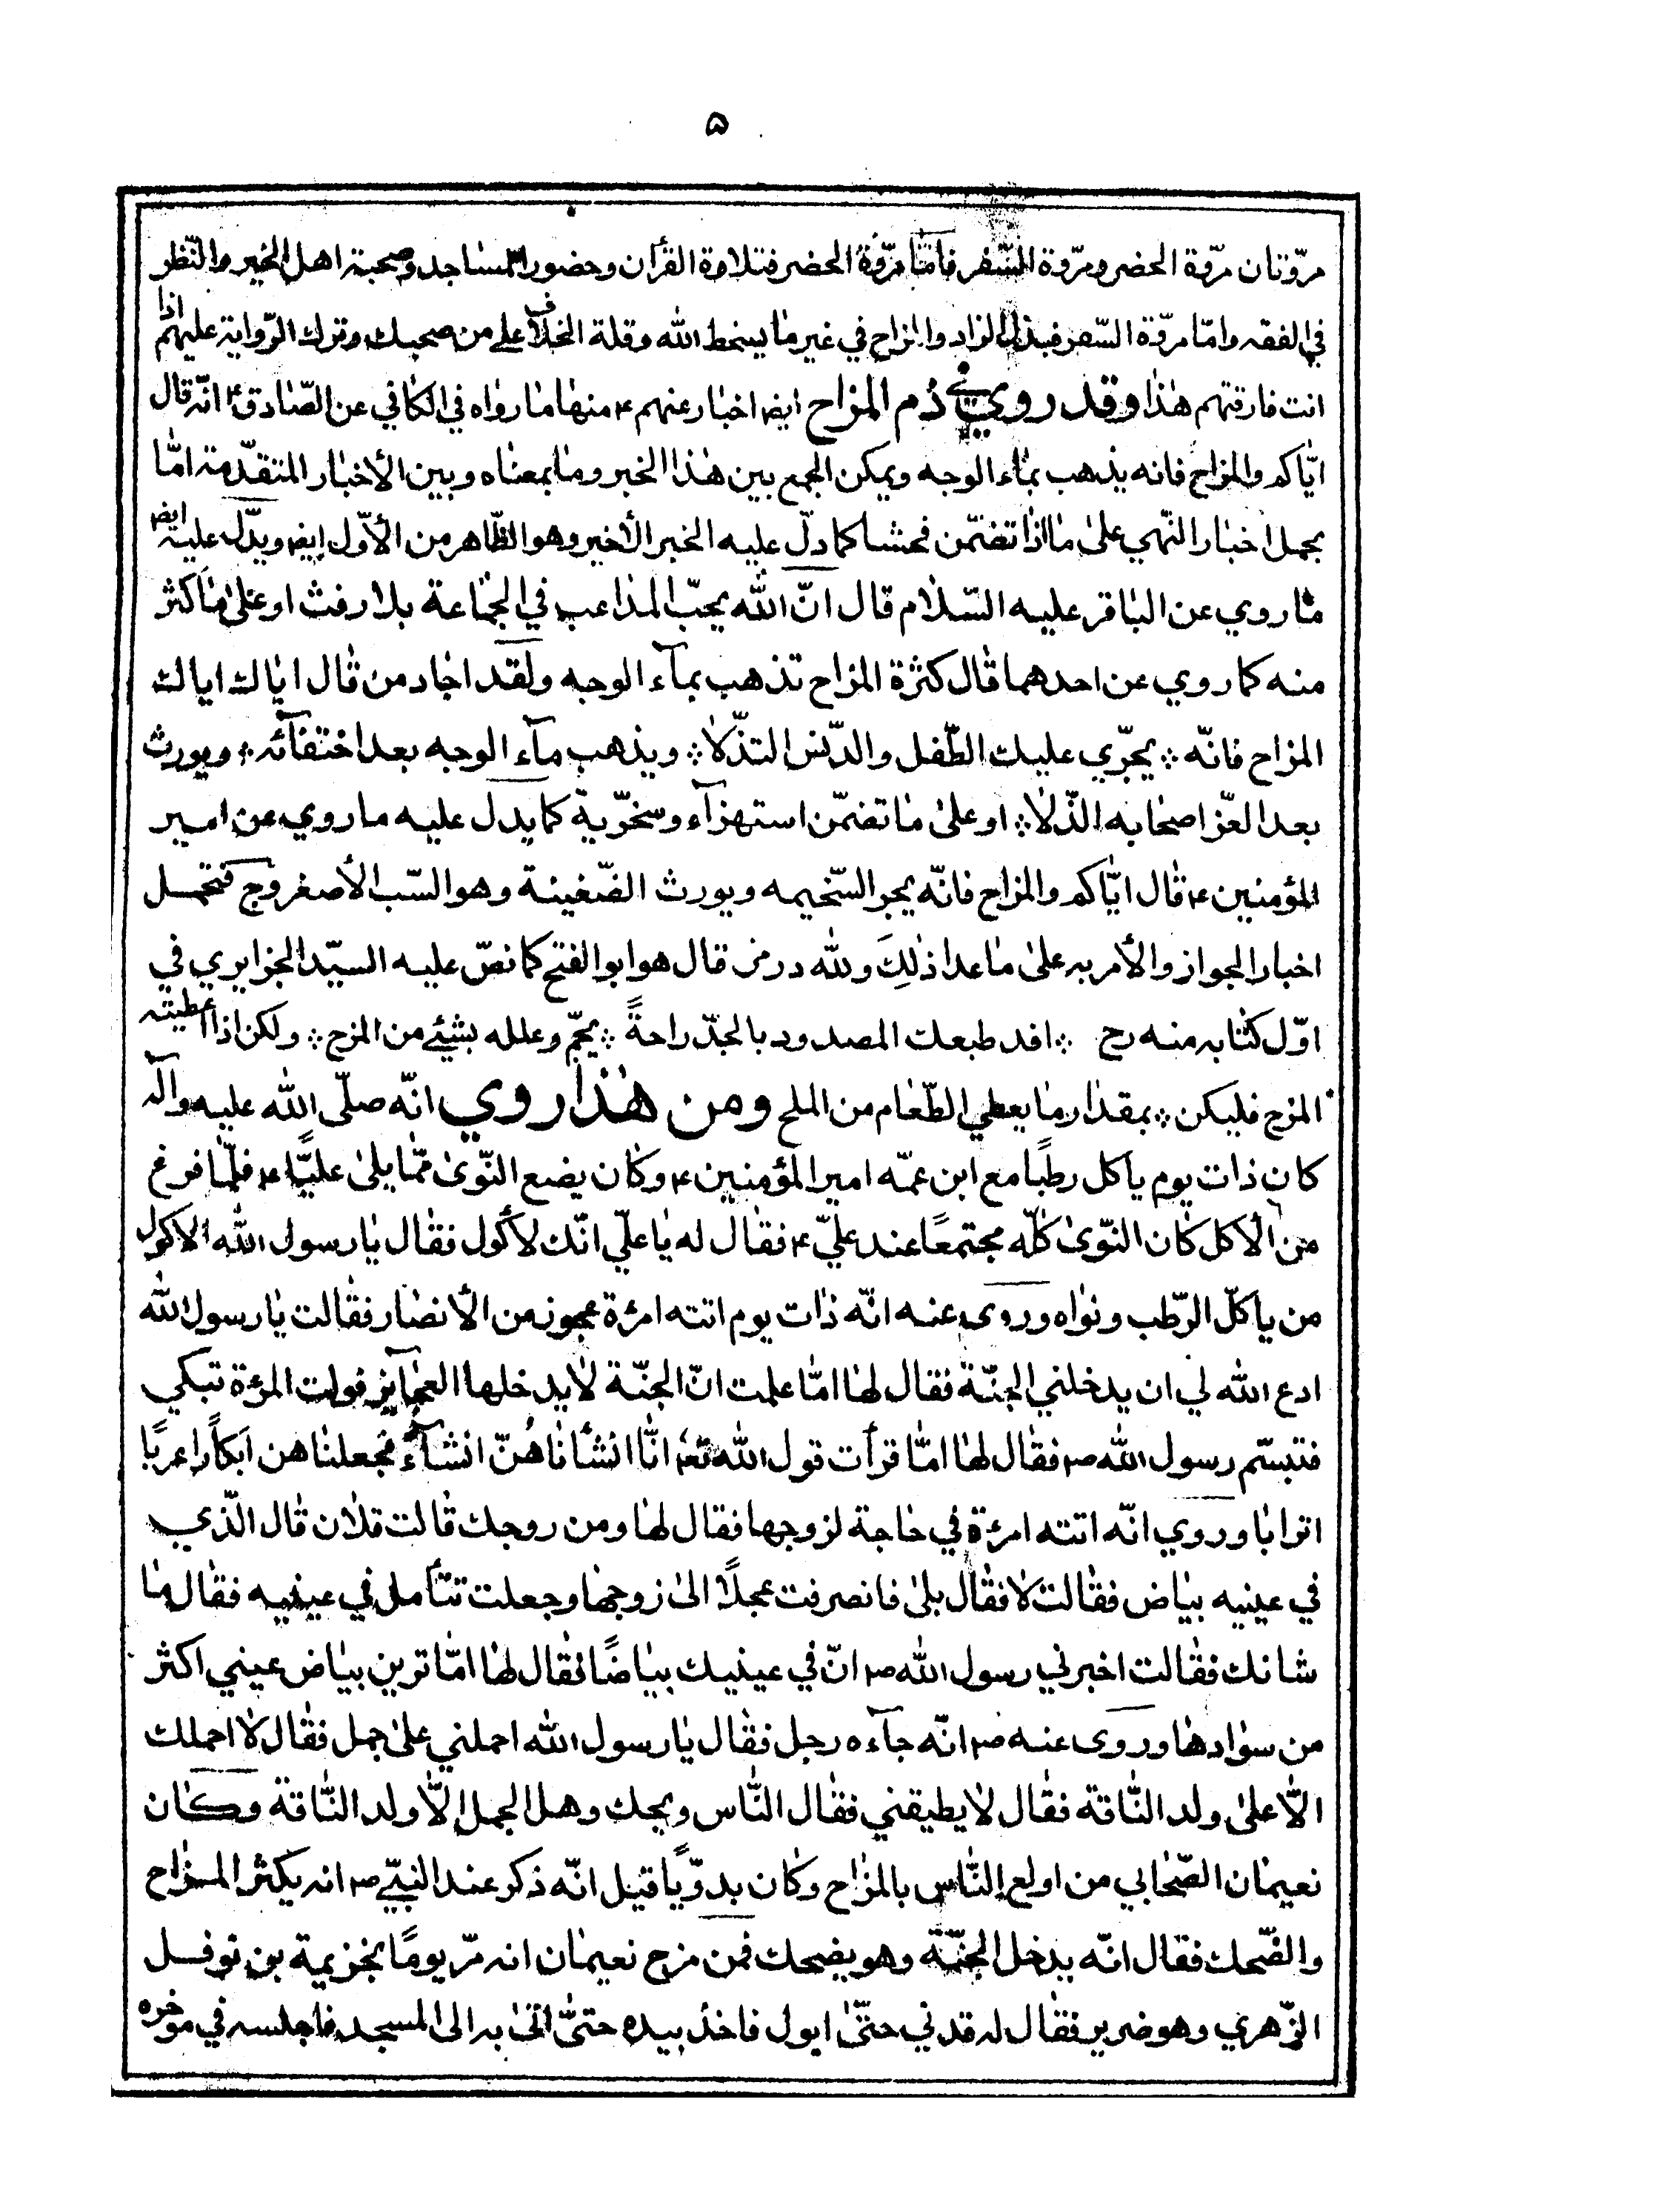 ۵
مرّوتان مرّوة الحضر ومرّوة السّفر فامّا مرّوة الحضر فتلاوة القرأن وحضور المساجد وصحبة اهل الخير والنّظر
في الفقه وامّا مرّوة السّفر فبذل الزاد والمزاح في غير ما يسخط الله وقلة الخلاف على من صحبك وترك الرّواية عليهم اذا
انت فارقتهم هذا وقد روي في ذم المزاح ايضا اخبار عنهم ع منها ما رواه في الكافي عن الصّادق ع انّه قال
ايّاكم والمزاح فانه يذهب بماء الوجه ويمكن الجمع بين هذا الخبر وما بمعناه وبين الأخبار المتقدّمة امّا
بحمل اخبار النّهي على ما اذا تضمّن فحشا كما دلّ عليه الخبر الأخير وهو الظّاهر من الأوّل ايضا ويدّل عليه ايضا
ما روي عن الباقر عليه السّلام قال انّ الله يحبّ المذاعب في الجماعة بلا رفث او على ما كثر
منه كما روي عن احدهما قال كثرة المزاح تذهب بمآء الوجه ولقد اجاد من قال اياك اياك
المزاح فانّه ؞ يجرّي عليك الطّفل والدّنس التذّلا ؞ ويذهب مآء الوجه بعد اختفآئه ؞ ويورث
بعد العزّ اصحابه الذّلا ؞ او على ما تضمّن استهزآء وسخرّية كما يدل عليه ما روي عن امير
المؤمنين ع قال ايّاكم والمزاح فانّه يجر السّخيمه ويورث الضّغينة وهو السّب الأصغر وح فتحمل
اخبار الجواز والأمر به على ما عدا ذلِكَ ولله در من قال هو ابو الفتح كما نصّ عليه السيّد الجزايري في
اوّل كتابه منه رح ؞ افد طبعك المصدود بالجدّ راحةً ؞ يجمّ وعلله بشيئ من المزح ؞ ولكن اذا اعطيته
المزح فليكن ؞ بمقدار ما يعطي الطّعام من الملح ومن هذا روي انّه صلّى الله عليه وآله
كان ذات يوم ياكل رطبًا مع ابن عمّه امير المؤمنين ع وكان يضع النّوى ممّا يلى عليًّا ع فلمّا فرغ
من الأكل كان النّوى كلّه مجتمعًا عند عليّ ع فقال له يا علّي انّك لأكول فقال يا رسول الله الاكول
من ياكلّ الرّطب ونواه وروى عنه انّه ذات يوم اتته امرءة عجوز من الأنصار فقالت يا رسول الله
ادع الله لي ان يدخلني الجنّة فقال لها امّا علمت انّ الجنّة لا يدخلها العجآيز فولت المرءة تبكي
فتبسّم رسول الله ص فقال لها امّا قرأت قول الله تع انّا انشأناهُنّ انشآءً فجعلناهن اَبكاراً عربًا
اترابا وروي انّه اتته امرءة في حاجة لزوجها فقال لها ومن زوجك قالت فلان قال الّذي
في عينيه بياض فقالت لا فقال بلى فانصرفت عجلًا الى زوجها وجعلت تتأمل في عينيه فقال ما
شانك فقالت اخبرني رسول الله ص انّ في عينيك بياضًا فقال لها امّا ترين بياض عيني اكثر
من سوادها وروى عنه ص انّه جآءه رجل فقال يا رسول الله احملني على جمل فقال لا احملك
الّا على ولد النّاقة فقال لا يطيقني فقال النّاس ويحك وهل الجمل إلّا ولد النّاقة وكان
نعيمان الصّحابي من اولع النّاس بالمزاح وكان بدوّيًا قيل انّه ذكر عند النبيّ ص انه يكثر المزاح
والضّحك فقال انّه يدخل الجنّة وهو يضحك فمن مزح نعيمان انه مرّ يومًا بخزيمة بن نوفل
الزّهري وهو ضرير فقال له قدني حتّى ابول فاخذ بيده حتّى اتى به الى المسجد فاجلسه في موخره